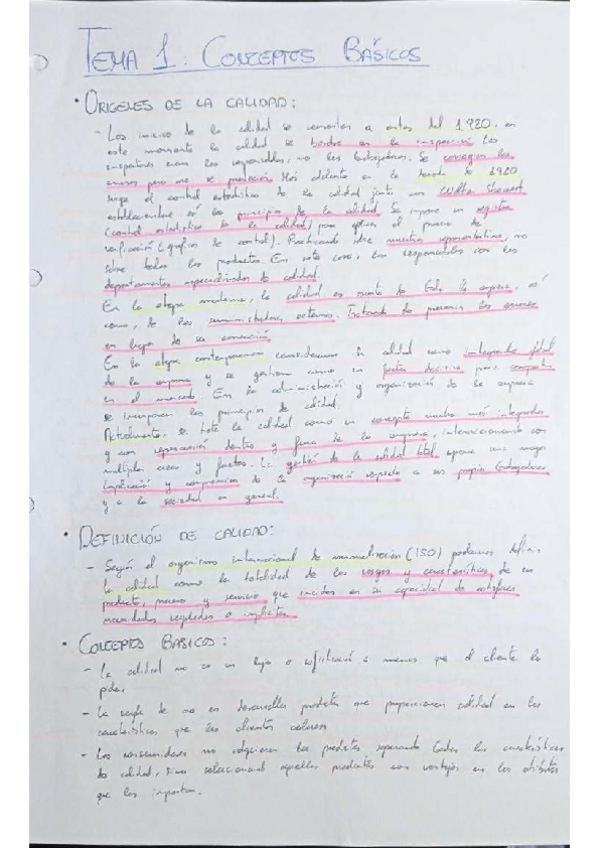 TEMA 1: CONCEPTOS BÁSICOS
· ORIGENES DE LA CALIDAD:
- Los inicios de la calidad se remontan a antes del 1920, en
este momento la calidad se basaba en la inspección. Los
inspectores eran los responsables, no los trabajadores. Se corregían los
errores pero no se prevenían. Más adelante en la década de 1920
surge el control estadístico de la calidad junto con Walter Shewart
estableciendose así los principios de la calidad. Se impone un registro
(control estadístico de la calidad) para aplicar el proceso de
verificación (gráficos de control). Practicando sobre muestras representativas, no
sobre todos los productos. En este caso, los responsables son los
departamentos especializados de calidad.
En la etapa moderna, la calidad es asunto de toda la empresa, así
como, de los suministradores externos. Tratando de prevenir los errores
en lugar de su corrección.
En la etapa contemporanea consideramos la calidad como integrador total
de la empresa y se gestiona como un factor decisivo para competir
en el mercado. En la administración y organización de la empresa
se incorporan los principios de calidad.
Actualmente, se trata la calidad como un concepto mucho más integrador
y con repercusión dentro y fuera de la empresa, interaccionando con
multiples areas y factores. La gestión de la calidad total supone una mayor
implicación y compromiso de la organización respecto a sus propios trabajadores
y a la sociedad en general.
· DEFINICIÓN DE CALIDAD:
- Según el organismo internacional de normalización (ISO) podemos definir
la calidad como la totalidad de los rasgos y características de un
producto, proceso y servicio que inciden en su capacidad de satisfacer
necesidades reguladas o implícitas.
· CONCEPTOS BASICOS:
- La calidad no es un lujo o sofisticación a menos que el cliente lo
pida.
- La regla de oro es desarrollar productos que proporcionen calidad en las
características que los clientes valoran
- Los consumidores no adquieren los productos separando todas las características
de calidad, sino seleccionando aquellos productos con ventajas en los atributos
que les importan.